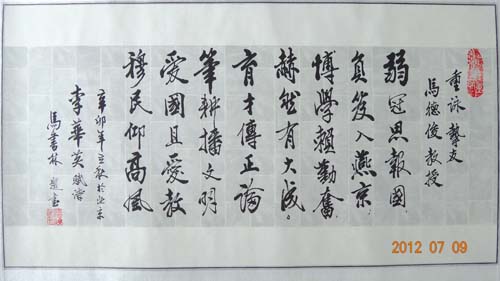 重詠摯友
馬德俊教授
弱冠思報國
負笈入燕京
博學賴勤奮
赫然有大成。
育才傳正論
筆耕播文明
愛國且愛教
穆民仰高風
辛卯年立秋於北京
李華英賦
馬書林題書
2012 07 09